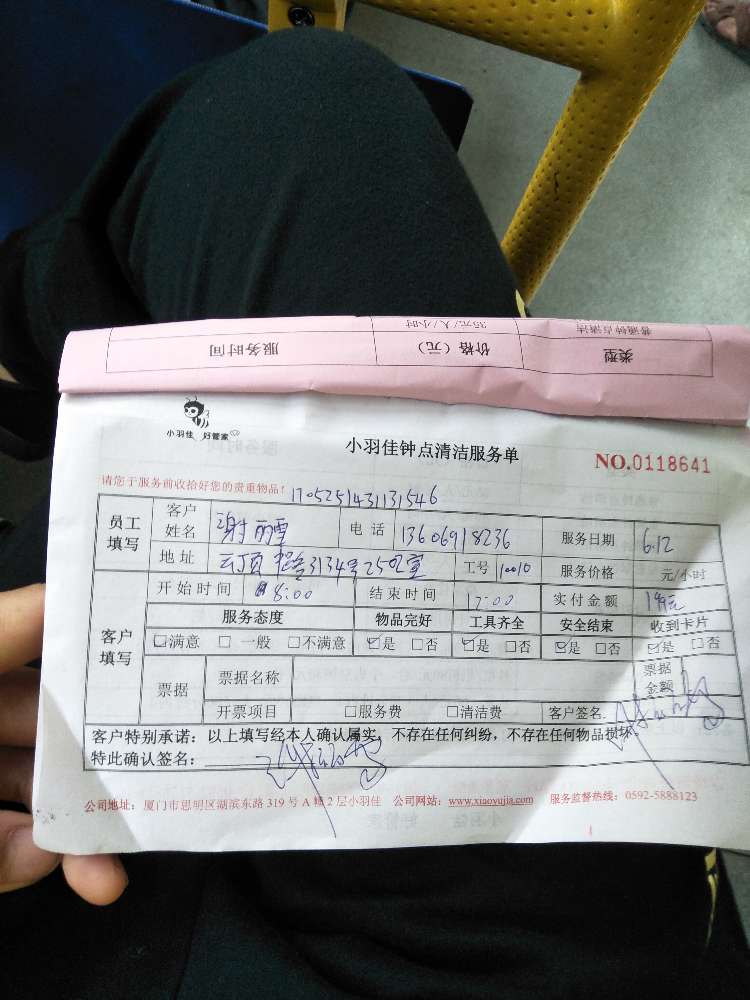 服务时间 价格（元） 类型
35元/人/小时 普通钟点清洁
小羽佳 好管家
小羽佳钟点清洁服务单 NO.0118641
请您于服务前收拾好您的贵重物品！ 1705251431131546
员工填写 客户姓名 谢丽雪 电话 13606918236 服务日期 6.12
地址 云顶 路3134号250室 工号 10010 服务价格 元/小时
客户填写 开始时间 8:00 结束时间 17:00 实付金额 元
服务态度 物品完好 工具齐全 安全结束 收到卡片
☑满意 □ 一般 □不满意 ☑是 □否 ☑是 □否 ☑是 □否 ☑是 □否
票据 票据名称 票据金额
开票项目 □服务费 □清洁费 客户签名
客户特别承诺：以上填写经本人确认属实，不存在任何纠纷，不存在任何物品损坏。
特此确认签名：
公司地址：厦门市思明区湖滨东路 319 号 A 幢 2 层小羽佳 公司网站：www.xiaoyujia.com 服务监督热线：0592-5888123